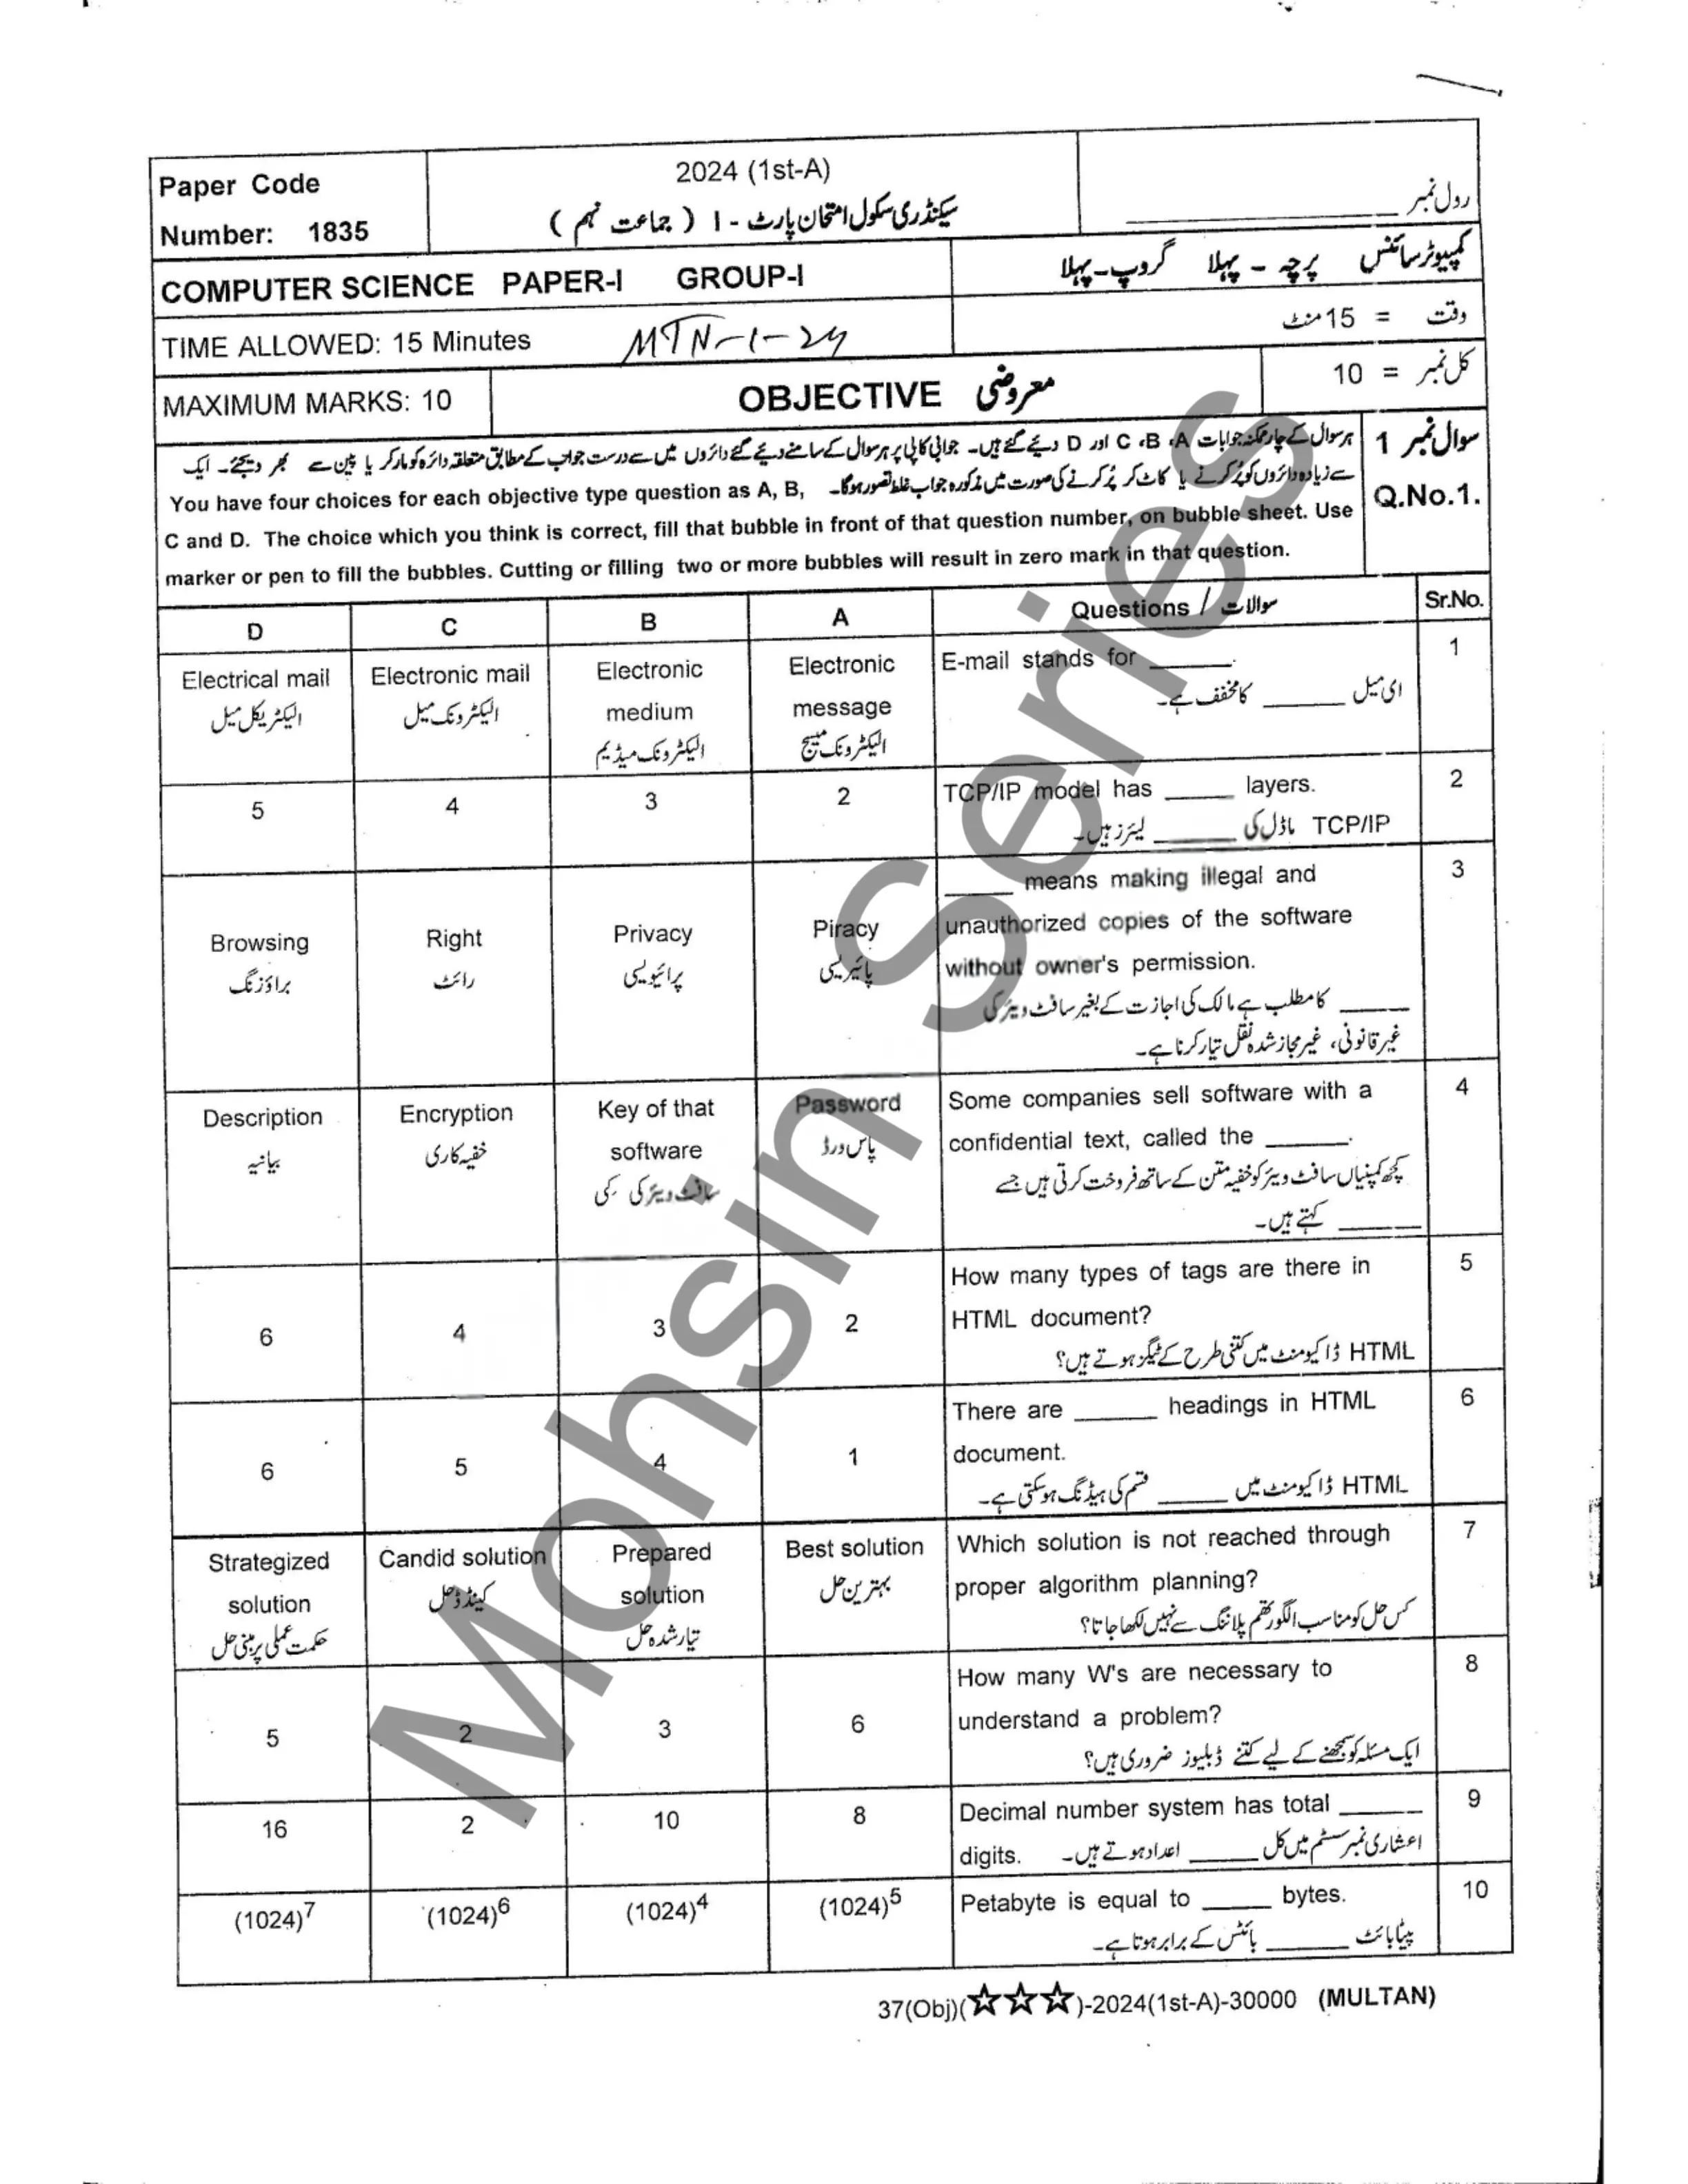 Paper Code
Number: 1835
2024 (1st-A)
سیکنڈری سکول امتحان پارٹ - I ( جماعت نہم )
رول نمبر ____________
COMPUTER SCIENCE PAPER-I GROUP-I
کمپیوٹر سائنس پرچہ - پہلا گروپ - پہلا
TIME ALLOWED: 15 Minutes
MTN-1-24
وقت = 15 منٹ
MAXIMUM MARKS: 10
OBJECTIVE معروضی
کل نمبر = 10
سوال نمبر 1
ہر سوال کے چار ممکنہ جوابات A، B، C اور D دیئے گئے ہیں۔ جوابی کاپی پر ہر سوال کے سامنے دیئے گئے دائروں میں سے درست جواب کے مطابق متعلقہ دائرہ کو مارکر یا پین سے بھر دیجئے۔ ایک
سے زیادہ دائروں کو پُر کرنے یا کاٹ کر پُر کرنے کی صورت میں مذکورہ جواب غلط تصور ہوگا۔
Q.No.1.
You have four choices for each objective type question as A, B,
C and D. The choice which you think is correct, fill that bubble in front of that question number, on bubble sheet. Use
marker or pen to fill the bubbles. Cutting or filling two or more bubbles will result in zero mark in that question.
D C B A Questions / سوالات Sr.No.
1
E-mail stands for ______.
ای میل ______ کا مخفف ہے۔
Electronic
message
الیکٹرونک میسج
Electronic
medium
الیکٹرونک میڈیم
Electronic mail
الیکٹرونک میل
Electrical mail
الیکٹریکل میل
2
TCP/IP model has _____ layers.
TCP/IP ماڈل کی ______ لیئرز ہیں۔
5 4 3 2
3
_____ means making illegal and
unauthorized copies of the software
without owner's permission.
_____ کا مطلب ہے مالک کی اجازت کے بغیر سافٹ ویئر کی
غیر قانونی، غیر مجاز شدہ نقل تیار کرنا ہے۔
Piracy
پائیریسی
Privacy
پرائیویسی
Right
رائٹ
Browsing
براؤزنگ
4
Some companies sell software with a
confidential text, called the ______.
کچھ کمپنیاں سافٹ ویئر کو خفیہ متن کے ساتھ فروخت کرتی ہیں جسے
______ کہتے ہیں۔
Password
پاس ورڈ
Key of that
software
سافٹ ویئر کی کی
Encryption
خفیہ کاری
Description
بیانیہ
5
How many types of tags are there in
HTML document?
HTML ڈاکیومنٹ میں کتنی طرح کے ٹیگز ہوتے ہیں؟
6 4 3 2
6
There are ______ headings in HTML
document.
HTML ڈاکیومنٹ میں _____ قسم کی ہیڈنگ ہو سکتی ہے۔
6 5 4 1
7
Which solution is not reached through
proper algorithm planning?
کس حل کو مناسب الگورتھم پلاننگ سے نہیں لکھا جاتا؟
Best solution
بہترین حل
Prepared
solution
تیار شدہ حل
Candid solution
کینڈڈ حل
Strategized
solution
حکمت عملی پر مبنی حل
8
How many W's are necessary to
understand a problem?
ایک مسئلہ کو سمجھنے کے لیے کتنے ڈبلیوز ضروری ہیں؟
5 2 3 6
9
Decimal number system has total ______
digits.
اعشاری نمبر سسٹم میں کل _____ اعداد ہوتے ہیں۔
16 2 10 8
10
Petabyte is equal to _____ bytes.
پیٹا بائٹ ______ بائٹس کے برابر ہوتا ہے۔
(1024)7 (1024)6 (1024)4 (1024)5
37(Obj)(☆☆☆)-2024(1st-A)-30000 (MULTAN)
Mohsin Series